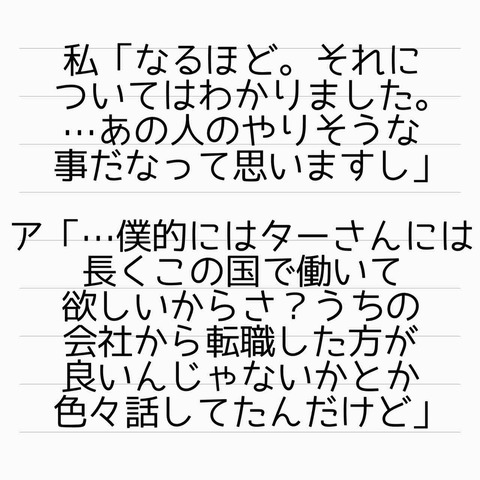 私「なるほど。それに
ついてはわかりました。
…あの人のやりそうな
事だなって思いますし」
ア「…僕的にはターさんには
長くこの国で働いて
欲しいからさ？うちの
会社から転職した方が
良いんじゃないかとか
色々話してたんだけど」